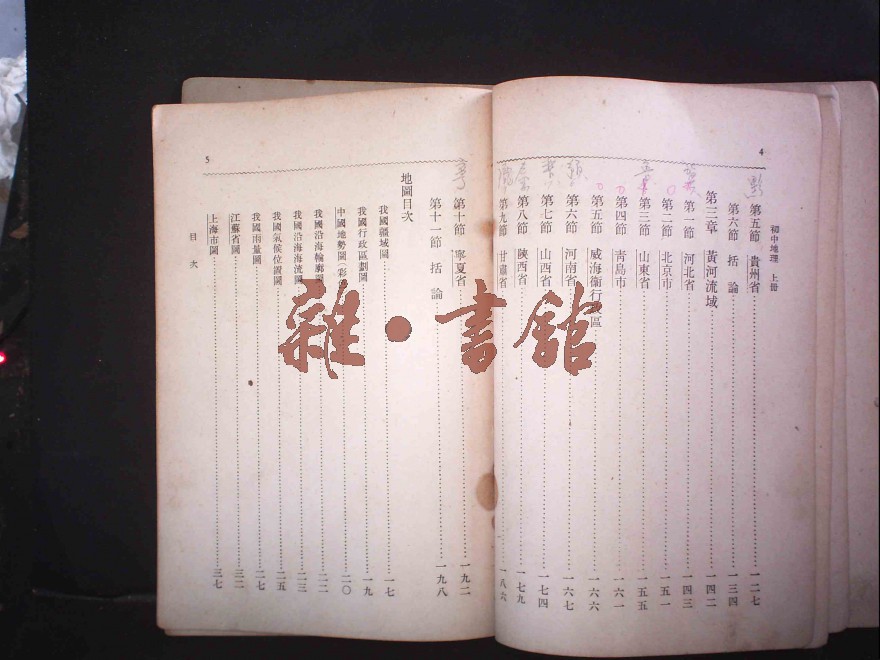 4
初中地理 上冊
第五節 貴州省 一二七
第六節 括論 一三四
第三章 黃河流域 一四二
第一節 河北省 一四三
第二節 北京市 一五一
第三節 山東省 一五五
第四節 青島市 一六一
第五節 威海衞行政區 一六六
第六節 河南省 一六七
第七節 山西省 一七四
第八節 陝西省 一七九
第九節 甘肅省 一八六
5
第十節 寧夏省 一九二
第十一節 括論 一九八
地圖目次
我國疆域圖 一七
我國行政區劃圖 一九
中國地勢圖(彩 二〇
我國沿海輪廊圖 二二
我國沿海海流圖 二三
我國氣候位置圖 二五
我國雨量圖 二七
江蘇省圖 三二
上海市圖 三七
目次
雜·書館